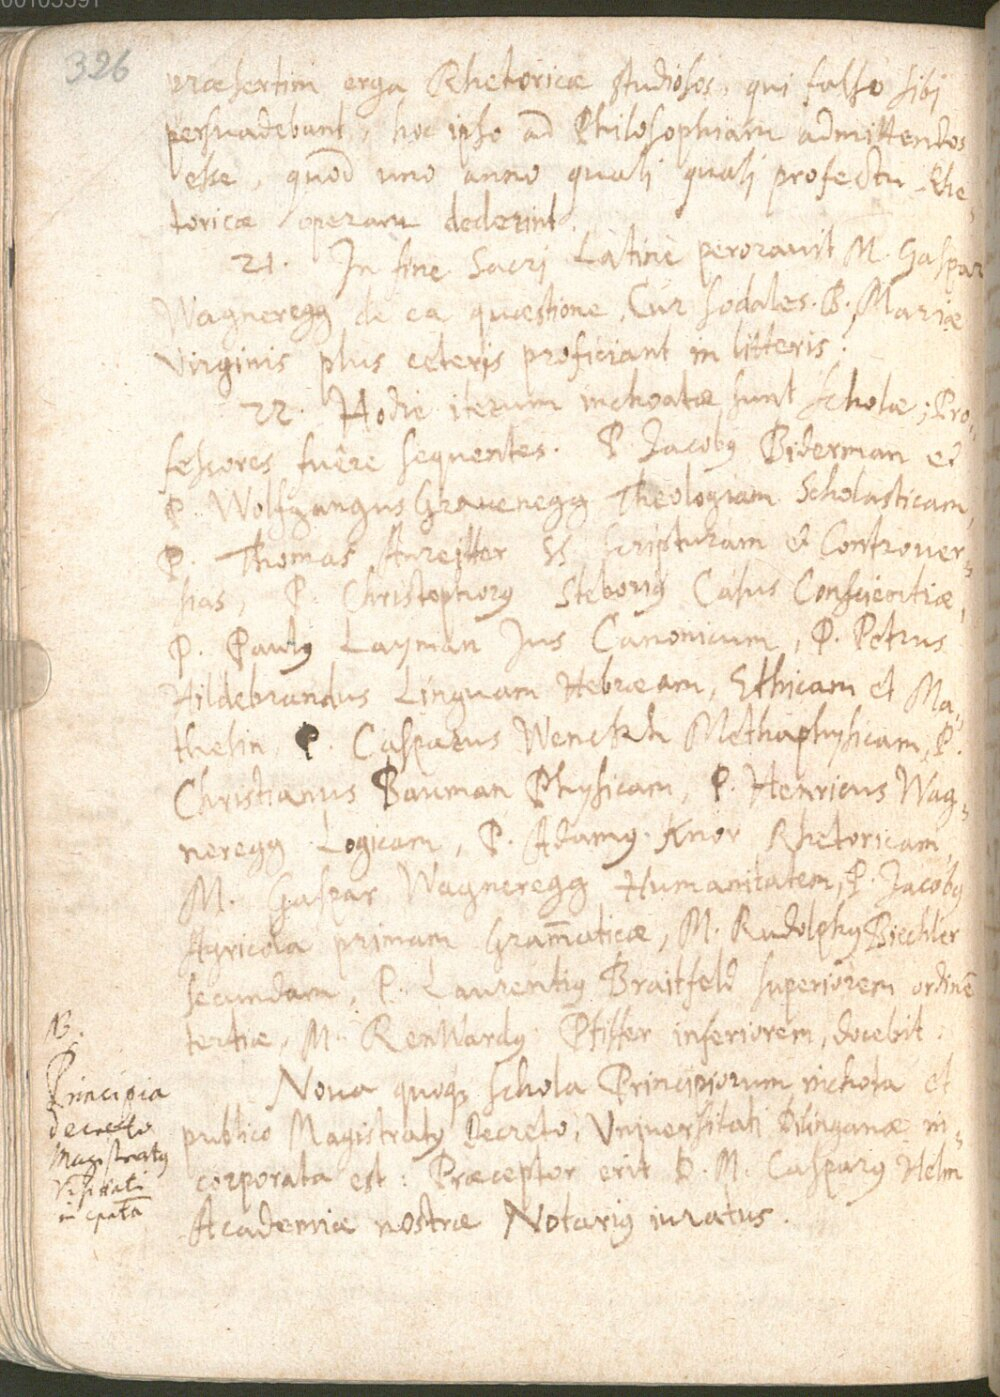 326
præsertim erga Rhetoricæ studiosos, qui falso sibi
persuadebant, hoc ipso ad Philosophiam admittendos
esse, quod uno anno quali quali profectu Rhe-
toricæ operam dederint.
21. In fine Sacri Latine perorauit M. Gaspar
Wagneregg de ea quæstione, Cur sodales B. Mariæ
Virginis plus ceteris proficiant in litteris.
22. Hodie iterum inchoatæ sunt scholæ; Pro-
fessores fuêre sequentes. P. Jacobus Biderman et
P. Wolfgangus Grauenegg Theologiam Scholasticam,
P. Thomas Anreitter SS. Scripturam et Controuer-
sias, P. Christophorus Steborius Casus Conscientiæ,
P. Paulus Layman Jus Canonicum, P. Petrus
Hildebrandus Linguam Hebræam, Ethicam et Ma-
thesin, P. Casparus Wenckh Methaphysicam, P.
Christianus Bauman Physicam, P. Henricus Wag-
neregg Logicam, P. Adamus Knor Rhetoricam,
M. Gaspar Wagneregg Humanitatem, P. Jacobus
Agricola primam Grammaticæ, M. Rudolphus Biechler
secundam, P. Laurentius Braitfeld superiorem ordinē
tertiæ, M. RenWardus Pfiffer inferiorem, docebit.
NB.
Principia
decreto
Magistratus
Vniuersitati
in cpata
Noua quoque schola Principiorum inchota et
publico Magistratus Decreto, Vniuersitati Dilinganæ in-
corporata est: Præceptor erit D. M. Casparus Helm
Academiæ nostræ Notarius iuratus.